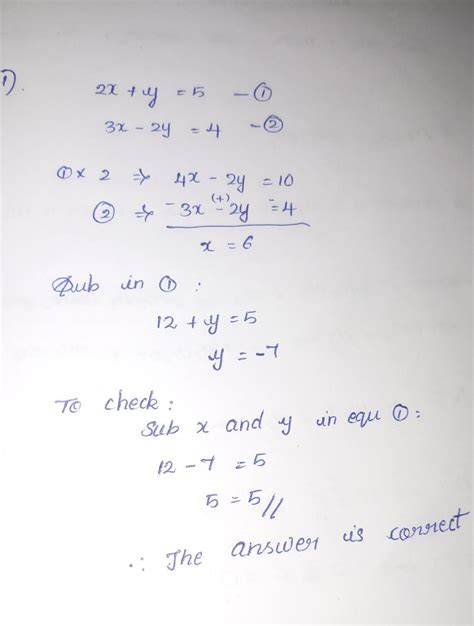 1).
2x + y = 5 — ①
3x - 2y = 4 — ②
① x 2 ⇒ 4x - 2y = 10
② ⇒ - 3x (+)- 2y -= 4
x = 6
Sub in ① :
12 + y = 5
y = -7
To check :
Sub x and y in equ ① :
12 - 7 = 5
5 = 5 //
∴ The answer is correct